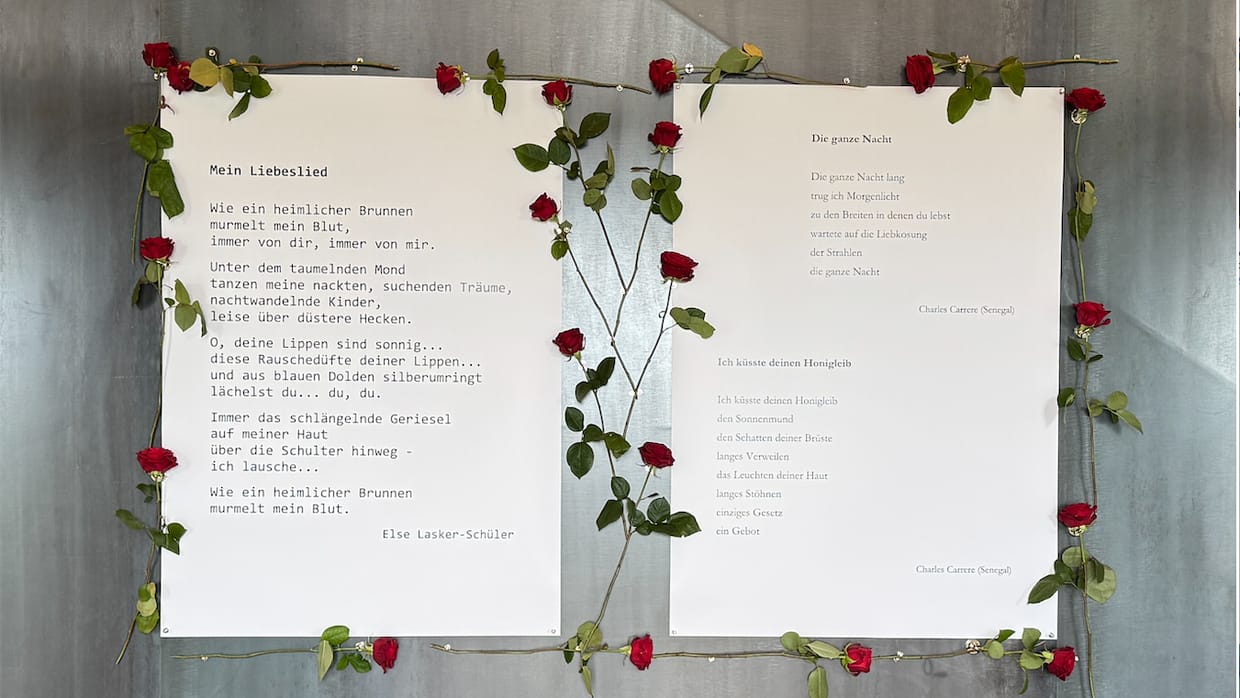 Mein Liebeslied
Wie ein heimlicher Brunnen
murmelt mein Blut,
immer von dir, immer von mir.
Unter dem taumelnden Mond
tanzen meine nackten, suchenden Träume,
nachtwandelnde Kinder,
leise über düstere Hecken.
O, deine Lippen sind sonnig...
diese Rauschedüfte deiner Lippen...
und aus blauen Dolden silberumringt
lächelst du... du, du.
Immer das schlängelnde Geriesel
auf meiner Haut
über die Schulter hinweg -
ich lausche...
Wie ein heimlicher Brunnen
murmelt mein Blut.
Else Lasker-Schüler
Die ganze Nacht
Die ganze Nacht lang
trug ich Morgenlicht
zu den Breiten in denen du lebst
wartete auf die Liebkosung
der Strahlen
die ganze Nacht
Charles Carrere (Senegal)
Ich küsste deinen Honigleib
Ich küsste deinen Honigleib
den Sonnenmund
den Schatten deiner Brüste
langes Verweilen
das Leuchten deiner Haut
langes Stöhnen
einziges Gesetz
ein Gebot
Charles Carrere (Senegal)